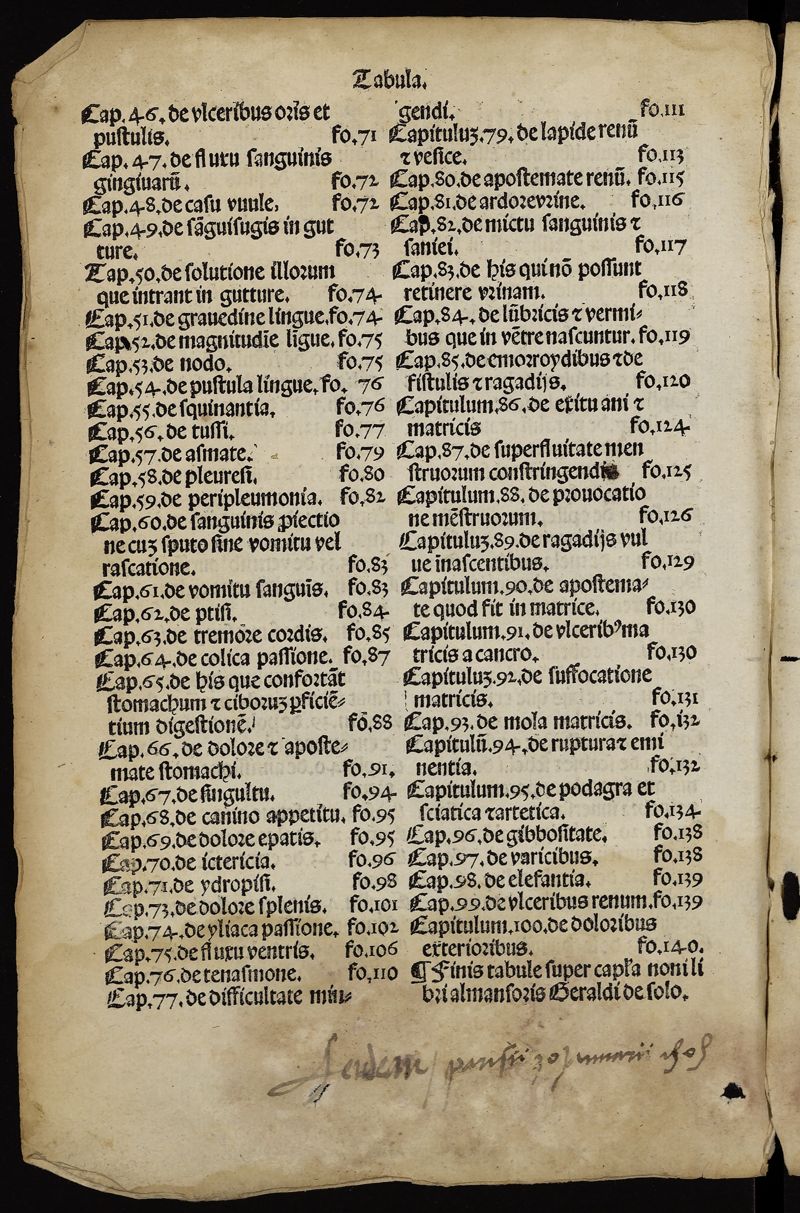 Tabula.
Cap. 46. de vlceribus oris et
pustulis. fo.71
Cap. 47. de fluxu sanguinis
gingiuarū. fo.72
Cap.48. de casu vuule. fo.72
Cap.49. de sāguisugis in gut
ture. fo.73
Tap.50. de solutione illorum
que intrant in gutture. fo.74
Cap.51. de grauedine lingue. fo.74
Cap.52. de magnitudīe līgue. fo.75
Cap.53. de nodo. fo.75
Cap.54. de pustula lingue. fo. 76
Cap.55. de squinantia. fo.76
Cap.56. de tussi. fo.77
Cap.57. de asmate. fo.79
Cap.58. de pleuresi. fo.80
Cap.59. de peripleumonia. fo.82
Cap.60. de sanguinis ꝓiectio
ne cuȝ sputo sine vomitu vel
rascatione. fo.83
Cap.61. de vomitu sanguīs. fo.83
Cap.62. de ptisi. fo.84
Cap.63. de tremore cordis. fo.85
Cap.64. de colica passione. fo.87
Cap.65. de his que confortāt
stomachum ⁊ ciboruȝ ꝑficiē⸗
tium digestionē. fo.88
Cap.66. de dolore ⁊ aposte⸗
mate stomachi. fo.91.
Cap.67. de singultu. fo.94
Cap.68. de canino appetitu. fo.95
Cap.69. de dolore epatis. fo.95
Cap.70. de ictericia. fo.96
Cap.71. de ydropisi. fo.98
Cap.73. de dolore splenis. fo.101
Cap.74. de yliaca passione. fo.102
Cap.75. de fluxu ventris. fo.106
Cap.76. de tenasmone. fo.110
Cap.77. de difficultate min⸗
gendi. fo.111
Capituluȝ.79. de lapide renū
⁊ vesice. fo.113
Cap.80. de apostemate renū. fo.115
Cap.81. de ardore vrine. fo.116
Cap.82. de mictu sanguinis ⁊
saniei. fo.117
Cap.83. de his qui nō possunt
retinere vrinam. fo.118
Cap.84. de lūbricis ⁊ vermi⸗
bus que in vētre nascuntur. fo.119
Cap.85. de emorroydibus ⁊ de
fistulis ⁊ ragadijs. fo.120
Capitulum.86. de exitu ani ⁊
matricis fo.124
Cap.87. de superfluitate men
struorum constringendis fo.125
Capitulum.88. de prouocatio
ne mēstruorum. fo.126
Capituluȝ.89. de ragadijs vul
ue īnascentibus. fo.129
Capitulum.90. de apostema⸗
te quod fit in matrice. fo.130
Capitulum.91. de vlceribꝰ ma
tricis a cancro. fo.130
Capituluȝ.92. de suffocatione
matricis. fo.131
Cap.93. de mola matricis. fo.132
Capitulū.94. de ruptura ⁊ emi
nentia. fo.132
Capitulum.95. de podagra et
sciatica ⁊ artetica. fo.134
Cap.96. de gibbositate. fo.138
Cap.97. de varicibus. fo.138
Cap.98. de elefantia. fo.139
Cap.99. de vlceribus renum. fo.139
Capitulum.100. de doloribus
exterioribus. fo.140.
¶ Finis tabule super capl'a noni li
bri almansoris Geraldi de solo.